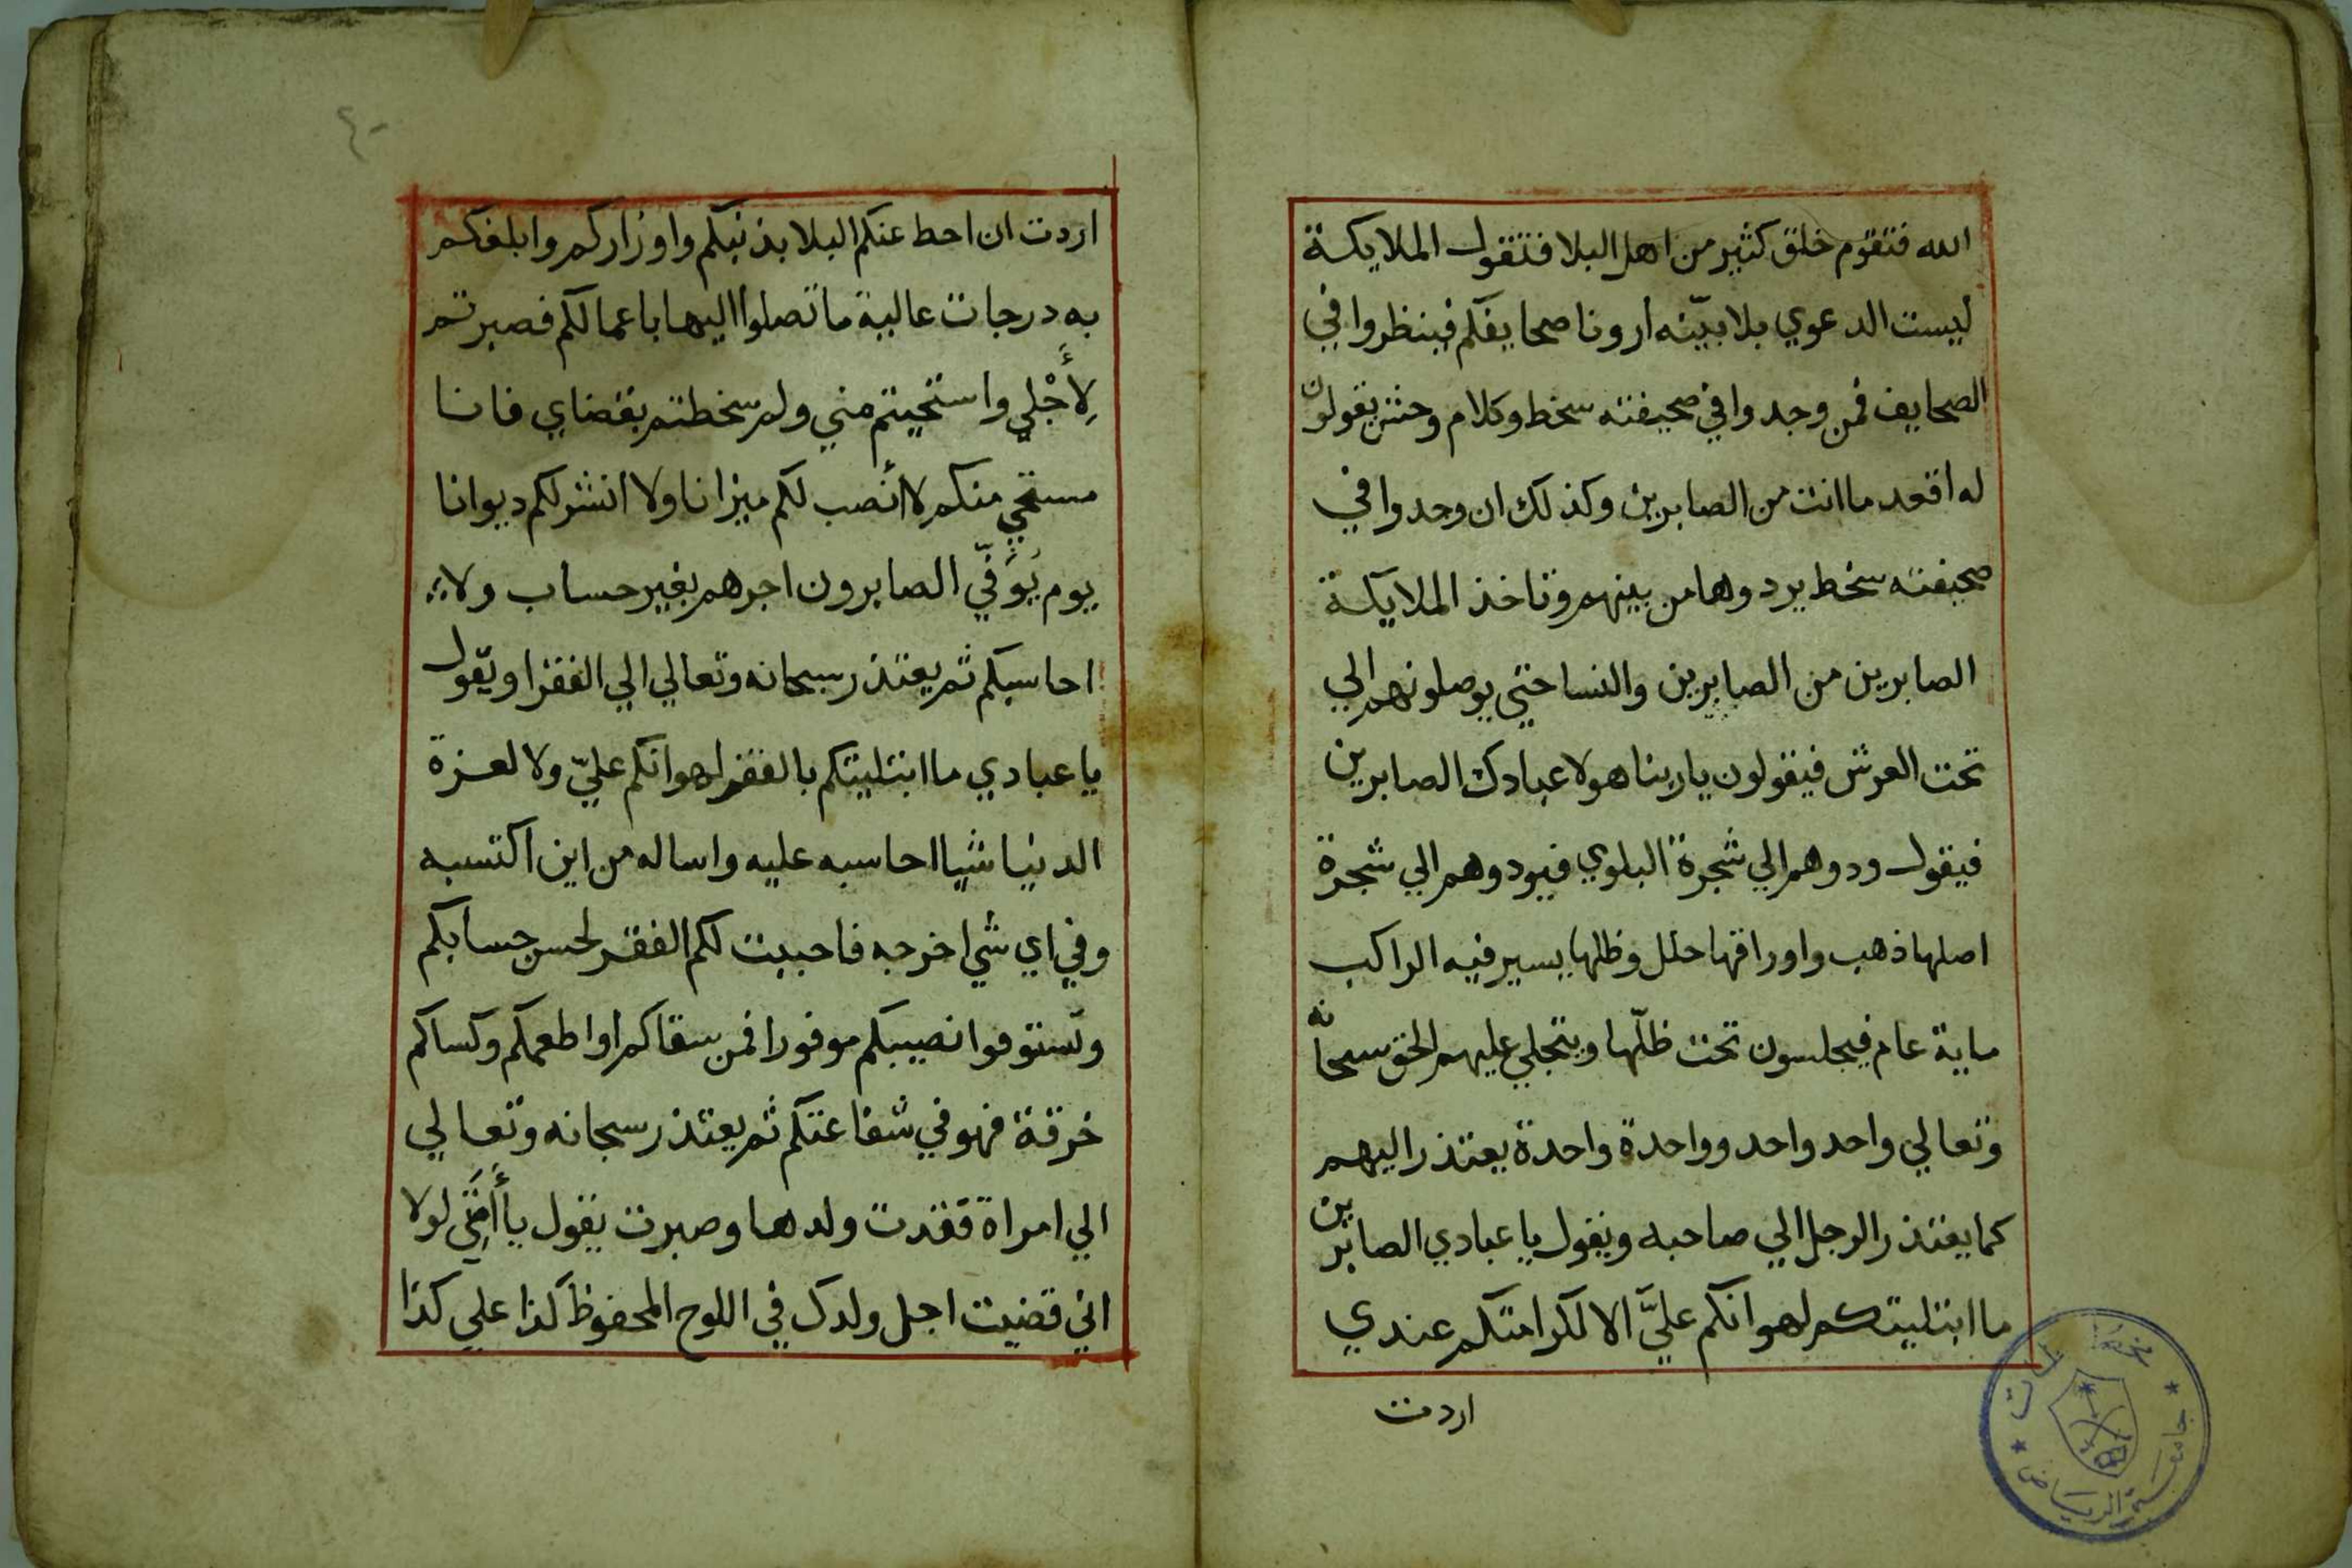 الله فتقوم خلق كثير من اهل البلا فتقول الملايكة
ليست الدعوي بلا بيّنه أرونا صحايفكم فينظروا في
الصحايف فمن وجدوا في صحيفته سخط وكلام وحنث يقولون
له اقعد ما انت من الصابرين وكذلك ان وجدوا في
صحيفته سخط يردوها من بينهم وتاخذ الملايكة
الصابرين من الصابرين والنسا حتي يوصلونهم الي
تحت العرش فيقولون يا ربنا هولا عبادك الصابرين
فيقول ودوهم الي شجرة البلوي فيودوهم الي شجرة
اصلها ذهب واوراقها حلل وظلها يسير فيه الراكب
ماية عام فيجلسون تحت ظلّها ويتجلي عليهم الحق سبحانه
وتعالي واحد واحد وواحدة واحدة يعتذر اليهم
كما يعتذر الرجل الي صاحبه ويقول يا عبادي الصابرين
ما ابتليتكم لهوانكم عليَّ الا لكرامتكم عندي
اردت
٤٠
اردت ان احط عنكم البلا بذنبكم واوزاركم وابلغكم
به درجات عالية ما تصلوا اليها باعمالكم فصبرتم
لِأَجْلِي واستحيتم مني ولم سخطتم بقضاي فانا
مستحي منكم لا أنصب لكم ميزانا ولا انشر لكم ديوانا
يوم يُوَفّي الصابرون اجرهم بغير حساب ولا
احاسبكم ثم يعتذر سبحانه وتعالي الي الفقرا ويقول
يا عبادي ما ابتليتكم بالفقر لهوانكم عليّ ولا لعزة
الدنيا شيا احاسبه عليه واساله من اين اكتسبه
وفي اي شي اخرجه فاحببت لكم الفقر لحسن حسابكم
وتستوفوا نصيبكم موفورا فمن سقاكم او اطعمكم وكساكم
خرقة فهو في شفاعتكم ثم يعتذر سبحانه وتعالي
الي امراة فقدت ولدها وصبرت يقول يا أَمَتِي لولا
اني قضيت اجل ولدك في اللوح المحفوظ كذا علي كذا
جامعة الرياض